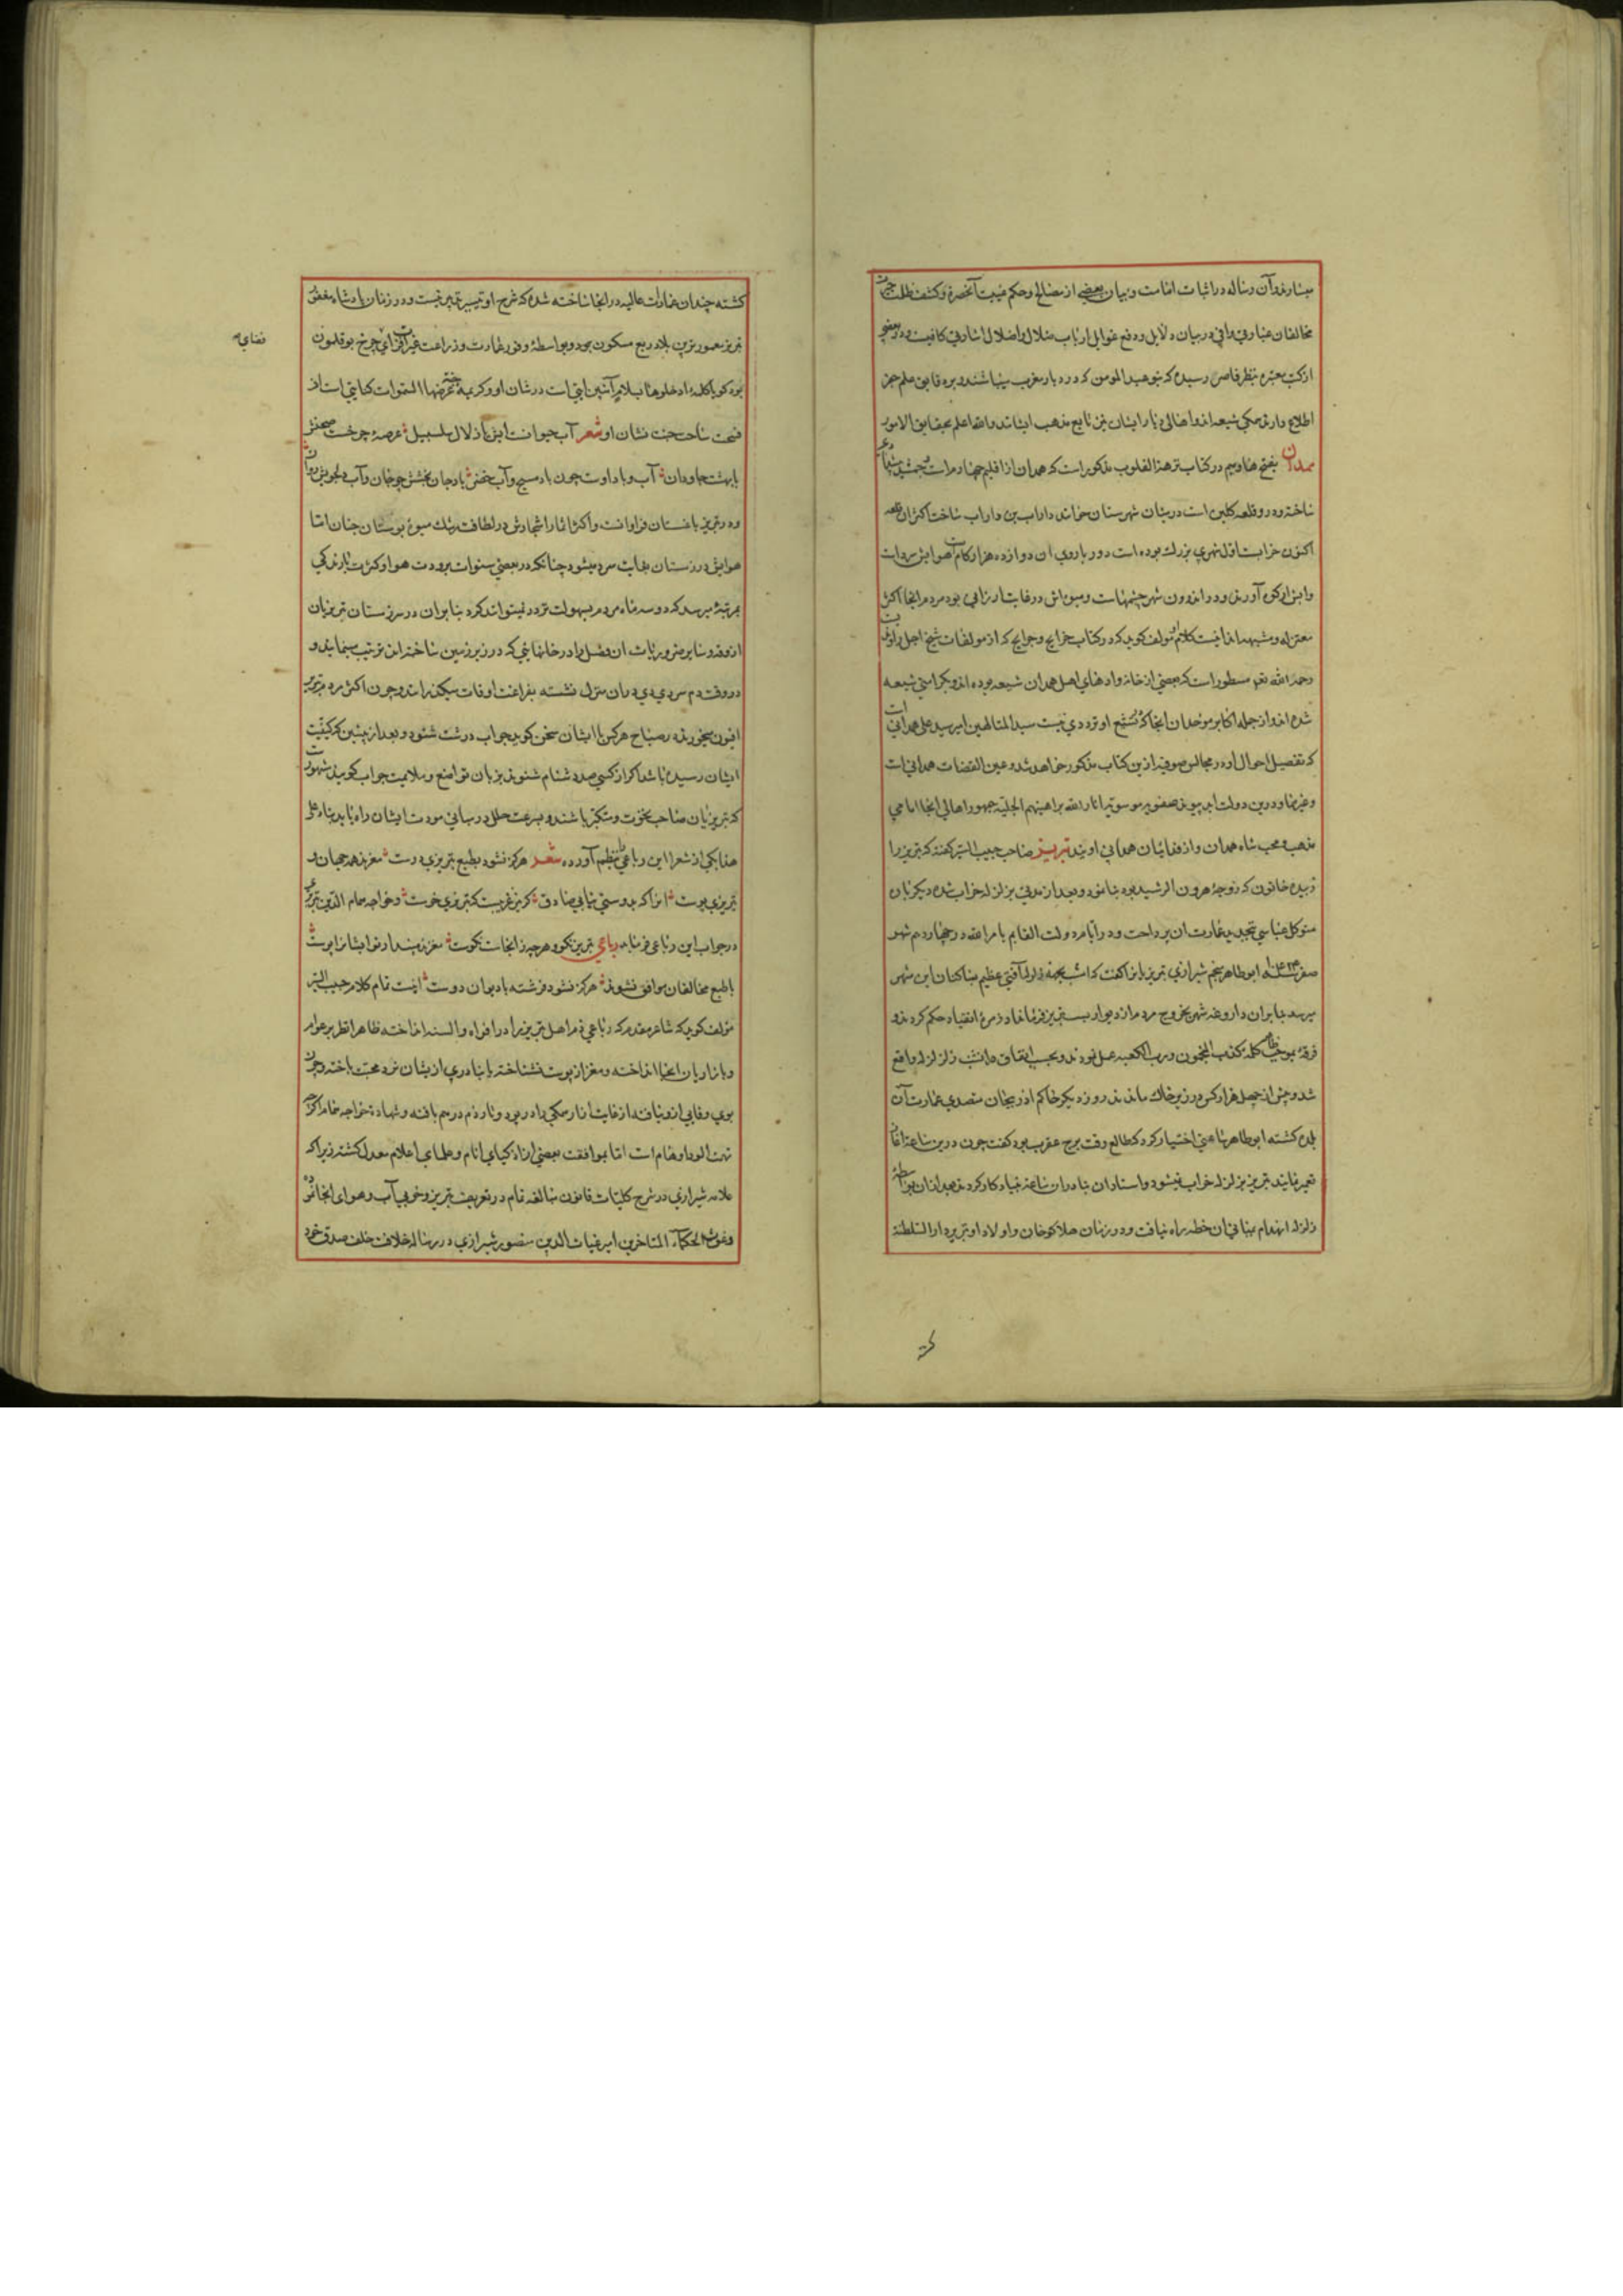 میسازند و آن رساله در اثبات امامت و بیان بعضی از مصالح و حکم غیبت آنحضرة و کشف ظلمت
مخالفان عبارتی وافی در بیان دلایل و دفع غوایل ارباب ضلال و اضلال اشارتی کافیست و در بعضی
از کتب معتبره بنظر قاصر رسیده که بنو عبد المومن که در دیار مغرب میباشند و بر دقایق علم جفر
اطلاع دارند همکی شیعه اند و اهالی دیار ایشان نیز تابع مذهب ایشانند والله اعلم بحقایق الامور
همدان بفتح ها و میم در کتاب نزهة القلوب مذکور است که همدان از اقلیم چهارم است جمشید پیشدادی
ساخته و در و قلعه کلین است در میان شهرستان خوانند داراب بن داراب ساخت اکثر آن قلعه
اکنون خرابست اول شهری بزرك بوده است دور باروی آن دوازده هزار کام است هوایش سرد است
و آبش از کوه آورند و در اندرون شهر چشمهاست و میوه اش در غایت ارزانی بود مردم آنجا اکثر
معتزله و مشبهه اند اینست کلام او مولف کوید که در کتاب خرایج و جرایح که از مولفات شیخ اجل راوندیست
رحمه الله نعم مسطور است که بعضی از خانواده های اهل همدان شیعه بوده اند و بکرامتی شیعه
شده اند و از جمله اکابر موحدان آنجا که در تشیع او ترددی نیست سید المتالهین امیر سید علی همدانی است
که تفصیل احوال او در مجالس صوفیه ازین کتاب مذکور خواهد شد و عین القضات همدانی است
و غیرهما و درین دولت ابد پیوند صفویه موسویه انار الله براهینهم الجلیه جمهور اهالی آنجا امامی
مذهب و محب شاه همدان و از فدائیان همدانی اویند تبریز صاحب حبیب السیر کفته که تبریز را
زبیده خاتون که زوجۀ هرون الرشید بود بنا نمود و بعد از مدتی بزلزله خراب شده دیکر باره
متوکل عباسی بتجدید عمارت آن پرداخت و در ایام دولت القایم بامرالله در چهاردهم شهر
صفر سنه ۴۳۴ ابوطاهر منجم شیرازی تبریزیانرا کفت که امشب بجهة زلزله آفتی عظیم بساکنان این شهر
میرسد بنابر آن داروغه شهر بخروج مردم از دیوار بست تبریز فرمانداد و زمرۀ انقیاد حکم کردند و
فرقۀ بموجب کلمه کذب المنجمون و رب الکعبه عمل نمودند و بحسب اتفاق در انشب زلزله واقع
شد و بیش از چهل هزار کس در زیر خاك ماندند روز دیکر حاکم اذربیجان متصدی عمارت آن
بلده کشته ابوطاهر ساعتی اختیار کرد که طالع وقت برج عقرب بود کفت چون درین ساعت آغاز
تعمیر نمایند تبریز بزلزله خراب نمیشود و استادان بنا در آن ساعت بنیاد کار کردند بعد از آن بواسطۀ
زلزله انهدام ببنای آن خطه راه نیافت و در زمان هلاکوخان و اولاد او تبریز دار السلطنة
کشته چندان عمارات عالیه در انجا ساخته شده که شرح او تیسیر پذیر نیست و در زمان پادشاه مغفور
تبریز معمورترین بلاد ربع مسکون بود و بواسطۀ وفور عمارت و زراعت غیرت افزای چرخ بوقلمون
بود کویا کلمۀ ادخلوها بسلام آمنین آیتی است در شان او و کریمۀ جنة عرضها السموات کنایتی است از
فسحت ساحت جنت نشان او شعر آب حیوانست آبش یا زلال سلسبیل عرصۀ چرخست صحنش
یا بهشت جاودان آب و باد اوست چون باد مسیح و آب خضر باد جان بخشش چو جان و آب دلجویش روان
و در تبریز باغستان فراوانست و اکثر اثمار اشجارش در لطافت رشك میوۀ بوستان جنان اما
هوایش در زمستان بغایت سرد میشود چنانکه در بعضی سنوات برودت هوا و کثرت بارندکی
بمرتبۀ میرسد که دو سه ماه مردم بسهولت تردد نمیتوانند کرد بنابر آن در سر زمستان تبریزیان
آذوقه و سایر ضروریات آن فصل را در خانهائی که در زیر زمین ساخته اند ترتیب مینمایند و
در وقت دم سردی دی در آن منزل نشسته بفراغت اوقات میکذرانند و چون اکثر مردم تبریز
افیون میخورند در صباح هر کس با ایشان سخن کوید جواب درشت شنود و بعد از پیشین که کیفیت
ایشان رسیده باشد اکر از کسی صد دشنام شنوند بزبان تواضع و ملایمت جواب کویند مشهور است
که تبریزیان صاحب نخوت و متکبر باشند و بسرعت خلل در مبانی مودت ایشان راه یابد بناء علی
هذا یکی از شعرا این رباعی بنظم آورده شعر هرکز نشود بطبع تبریزی دوست مغزند همه جهان و
تبریزی پوست انرا که بدوستی نیابی صادق کر نیز غریبست که تبریزی خوست و خواجه همام الدین تبریزی
در جواب این رباعی فرماید رباعی تبریز نکو و هر چه زانجاست نکوست مغزند مپندار تو ایشانرا پوست
با طبع مخالفان موافق نشوند هرکز نشود فرشته با دیوان دوست اینست تمام کلام حبیب السیر
مؤلف کوید که شاعر مقدم که رباعی ذم اهل تبریز را در افواه و السنه انداخته ظاهرا نظر بر عوام
و بازاریان آنجا انداخته و مغز از پوست نشناخته یا بنادری از ایشان نرد محبت باخته و چون
بوی وفایی ازو نیافته از غایت آزار همکی را در پود و تار ذم در هم بافته و شهادة خواجه همام اکرچه
تهمت آلود اوهام است اما بموافقت بعضی از اذکیای انام و علمای اعلام معدل کشته زیرا که
علامه شیرازی در شرح کلیات قانون مبالغه تمام در تعریف تبریز و خوبی آب و هوای آنجا نموده
و غوث الحکماء المتاخرین امیر غیاث الدین منصور شیرازی در رساله خلاف خلف صدق خود